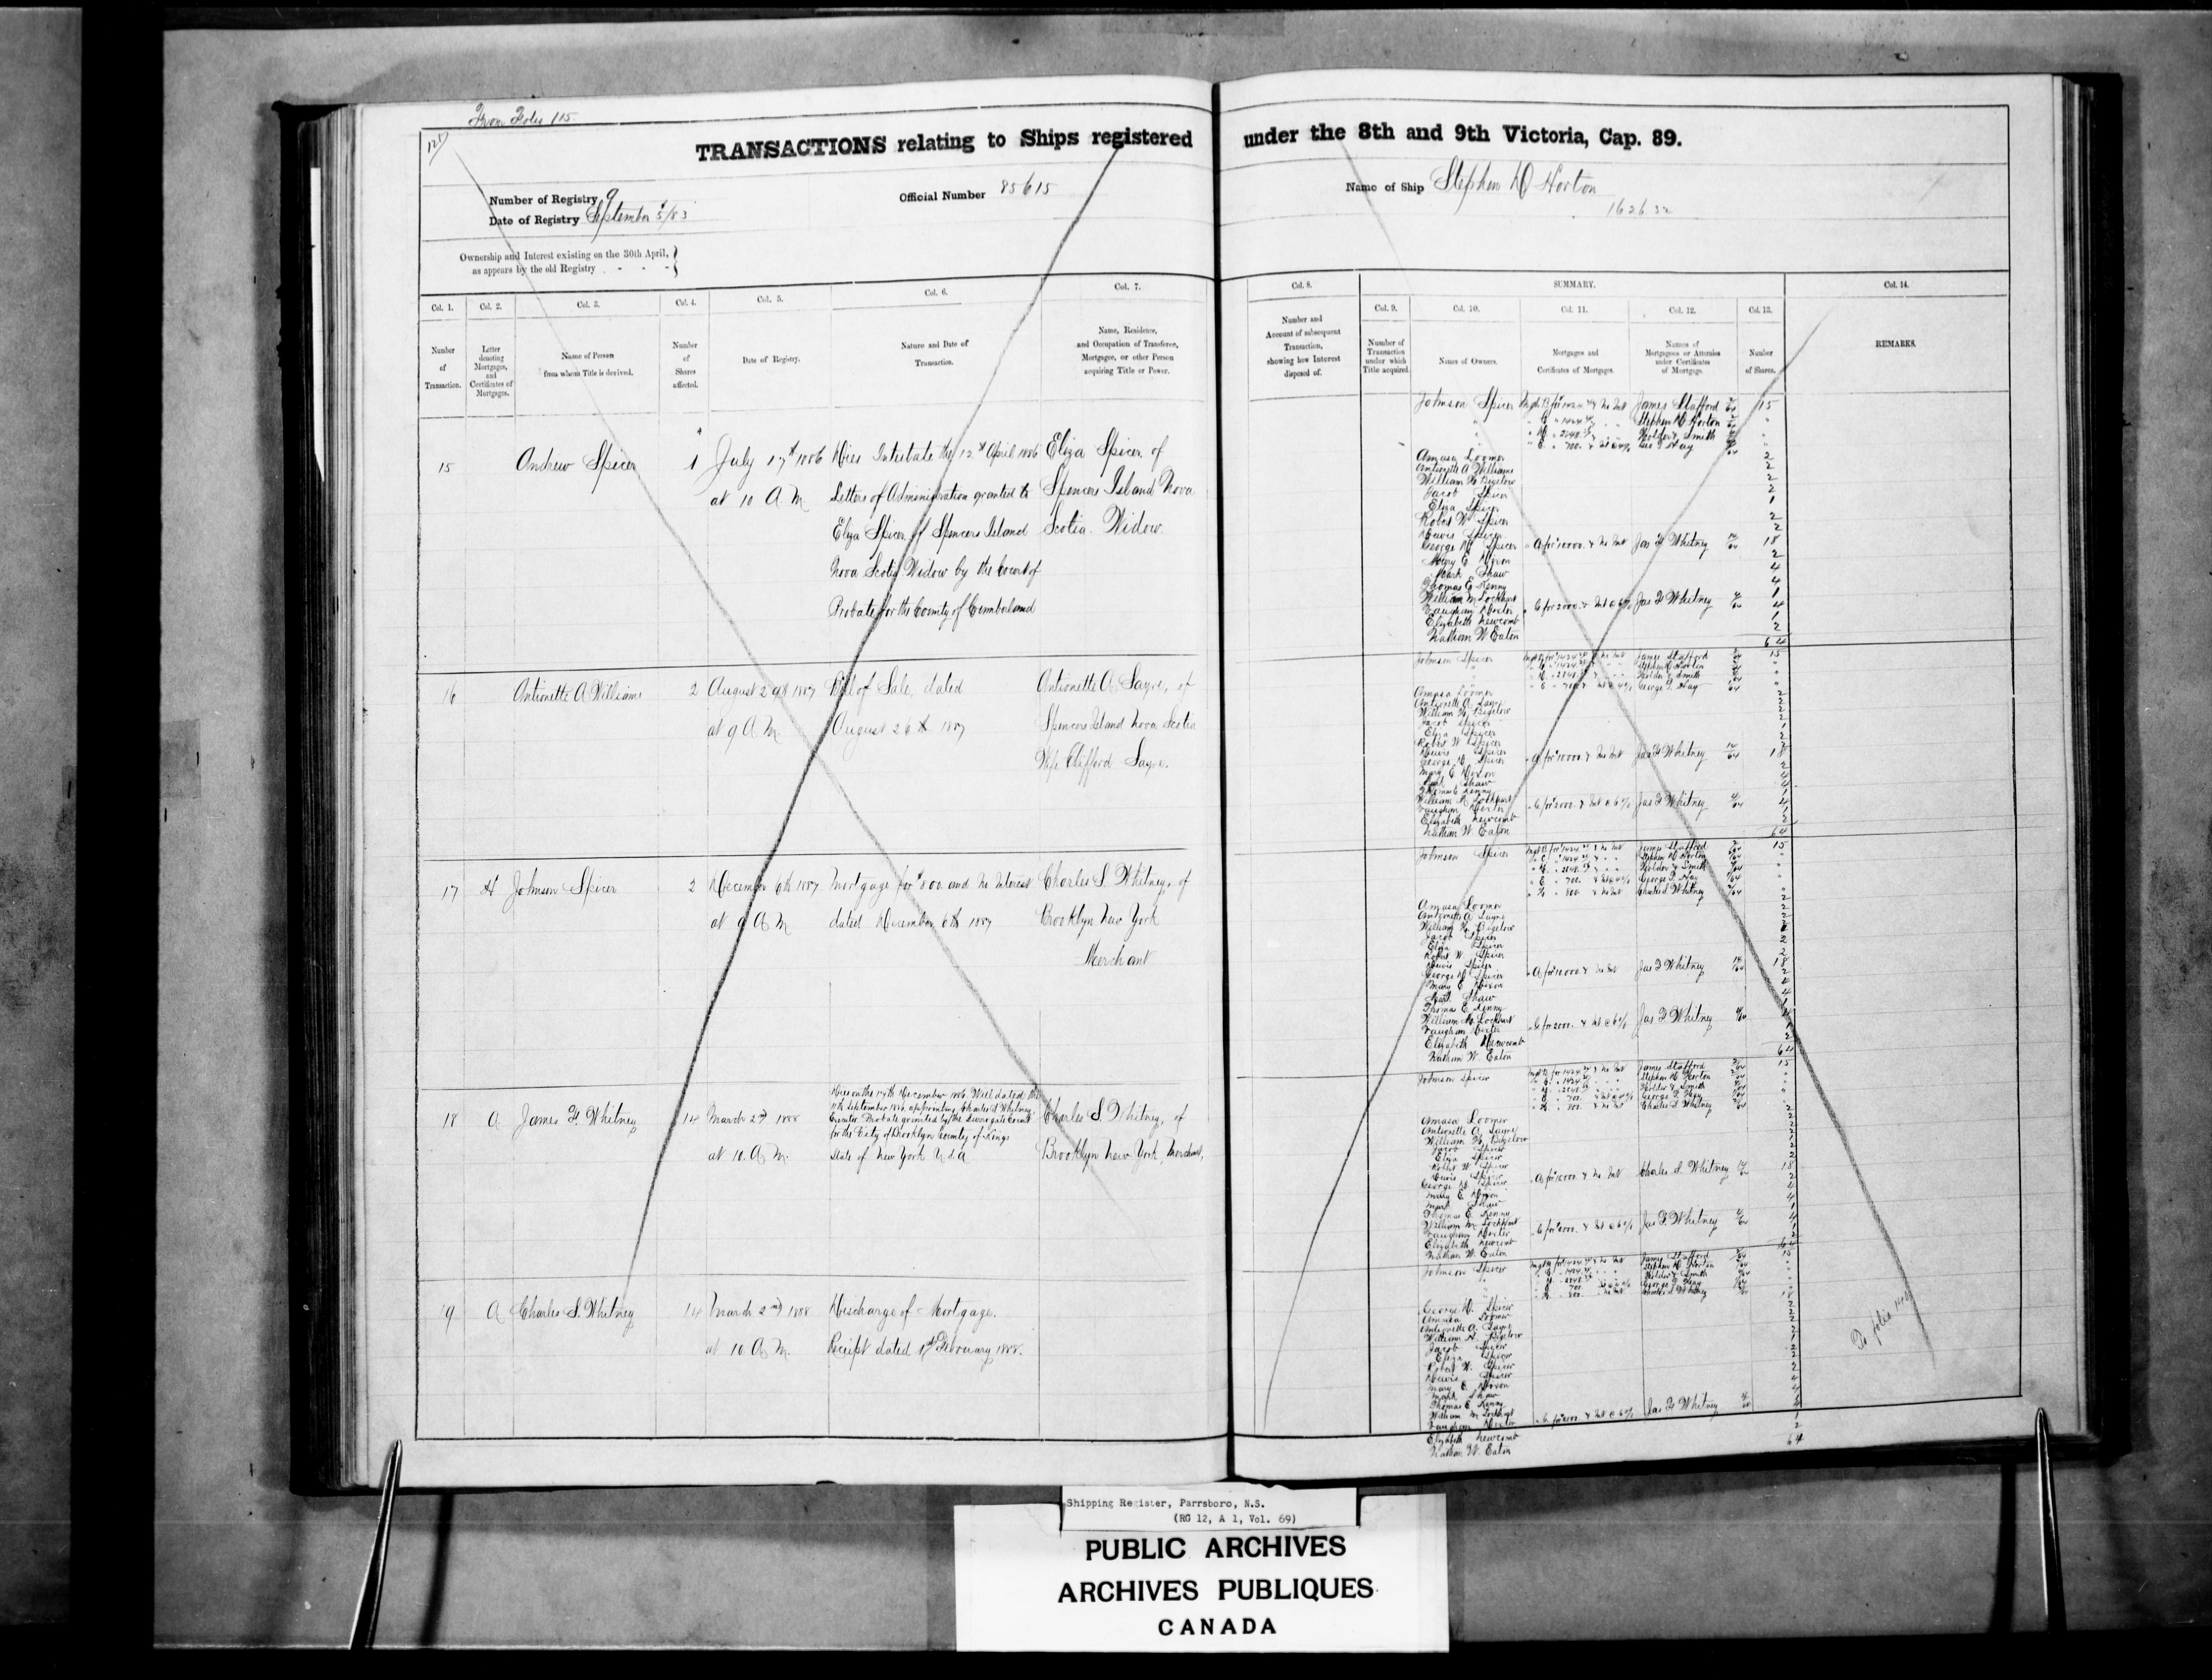 From Folio 115
TRANSACTIONS relating to Ships registered under the 8th and 9th Victoria, Cap. 89.
Number of Registry 9
Official Number 85615
Name of Ship Stephen D Horton
Date of Registry September 5/83
1626 32
Ownership and Interest existing on the 30th April,
as appears by the old Registry - - -
Col. 1. Col. 2. Col. 3. Col. 4. Col. 5. Col. 6. Col. 7.
Number of Transaction.
Letter denoting Mortgages, and Certificates of Mortgages.
Name of Person from whom Title is derived.
Number of Shares affected.
Date of Registry.
Nature and Date of Transaction.
Name, Residence, and Occupation of Transferee, Mortgagee, or other Person acquiring Title or Power.
15 Andrew Spicer 1 July 17th 1886 Dies Intestate the 12th April 1886 Eliza Spicer of
at 10 A.M. Letters of Administration granted to Spencers Island Nova
Eliza Spicer of Spencers Island Scotia. Widow.
Nova Scotia Widow by the Court of
Probate for the County of Cumberland
16 Antionette A Williams 2 August 29th 1887 Bill of Sale, dated Antionette A. Sayre, of
at 9 A M. August 26th 1887 Spencers Island Nova Scotia
Wife Clifford Sayre.
17 H Johnson Spicer 2 December 6th 1887 Mortgage for $800. and No Interest Charles S. Whitney, of
at 9 A M dated December 6th 1887 Brooklyn New York
Merchant
18 A James F. Whitney 14 March 2nd 1888 Dies on the December 1886 Will dated the
September 1886, appointing Charles S Whitney Charles S. Whitney, of
Executor, Probate granted by the Surrogate Court
for the City of Brooklyn County of Kings
at 10. A M. State of New York U S A Brooklyn New York, Merchant,
19 A Charles S. Whitney 14 March 2nd 1888 Discharge of Mortgage.
at 10 A M. Receipt dated 1st February 1888.
Col. 8. SUMMARY. Col. 14.
Col. 9. Col. 10. Col. 11. Col. 12. Col. 13.
Number and Account of subsequent Transaction, showing how Interest disposed of.
Number of Transaction under which Title acquired.
Names of Owners.
Mortgages and Certificates of Mortgages.
Names of Mortgagees or Attornies under Certificates of Mortgage.
Number of Shares.
REMARKS.
Johnson Spicer James Stafford 15
Stephen D Horton
Holder & Smith
Geo F Hay
Amasa Loomer 2
Antionette A Williams 2
William H Bigelow 2
Jacob Spicer 2
Eliza Spicer 1
Robert W Spicer 2
Dewis Spicer 2
George D Spicer A for 10000. & No Int Jas F Whitney 18
Mary E Dixon 2
Mark Shaw 4
Thomas E Kenny 4
William M Lockhart 1
Vaughan Dexter C for 2000. & Int @ 6% Jas F Whitney 4
Elizabeth Newcomb 1
Nathan W Eaton 2
64
Johnson Spicer James Stafford 15
Stephen D Horton
Holder & Smith
George F. Hay
Amasa Loomer
Antionette A. Sayre
William H. Bigelow
Jacob Spicer
Eliza Spicer
Robert W Spicer
Dewis Spicer
George D. Spicer A for 10000. & No Int Jas F Whitney 18
Mary E Dixon
Mark Shaw
Thomas E Kenny
William M Lockhart
Vaughan Dexter C for 2000. & Int @ 6% Jas F Whitney 4
Elizabeth Newcomb
Nathan W. Eaton
64
Johnson Spicer James Stafford 15
Stephen D Horton
Holder & Smith
George F. Hay
Charles S Whitney
Amasa Loomer
Antionette A Sayre
William H. Bigelow
Jacob Spicer
Eliza Spicer
Robert W. Spicer
Dewis Spicer
George D Spicer A for 10000. & No Int Jas F Whitney 18
Mary E Dixon
Mark Shaw
Thomas E Kenny
William M. Lockhart
Vaughan Dexter C for 2000. & Int @ 6% Jas F Whitney
Elizabeth Newcomb
Nathan W Eaton
64
Johnson Spicer James Stafford 15
Stephen D Horton
Holder & Smith
George F. Hay
Charles S Whitney
Amasa Loomer
Antionette A. Sayre
William H. Bigelow
Jacob Spicer
Eliza Spicer
Robert W Spicer
Dewis Spicer
George D. Spicer A for 10000. & No Int Charles S Whitney 18
Mary E Dixon
Mark Shaw
Thomas E. Kenny
William M Lockhart
Vaughan Dexter Jas F. Whitney
Elizabeth Newcomb
Nathan W. Eaton
64
Johnson Spicer James Stafford 15
Stephen D Horton
Holder & Smith
George F Hay
Charles S Whitney
George D. Spicer 18
Amasa Loomer
Antionette A. Sayre
William H. Bigelow
Jacob Spicer
Eliza Spicer
Robert W. Spicer
Dewis Spicer
Mary E. Dixon
Mark Shaw
Thomas E Kenny
William M Lockhart
Vaughan Dexter Jas F Whitney
Elizabeth Newcomb
Nathan W. Eaton
64
To folio
Shipping Register, Parrsboro, N.S.
(RG 12, A 1, Vol. 69)
PUBLIC ARCHIVES
ARCHIVES PUBLIQUES
CANADA